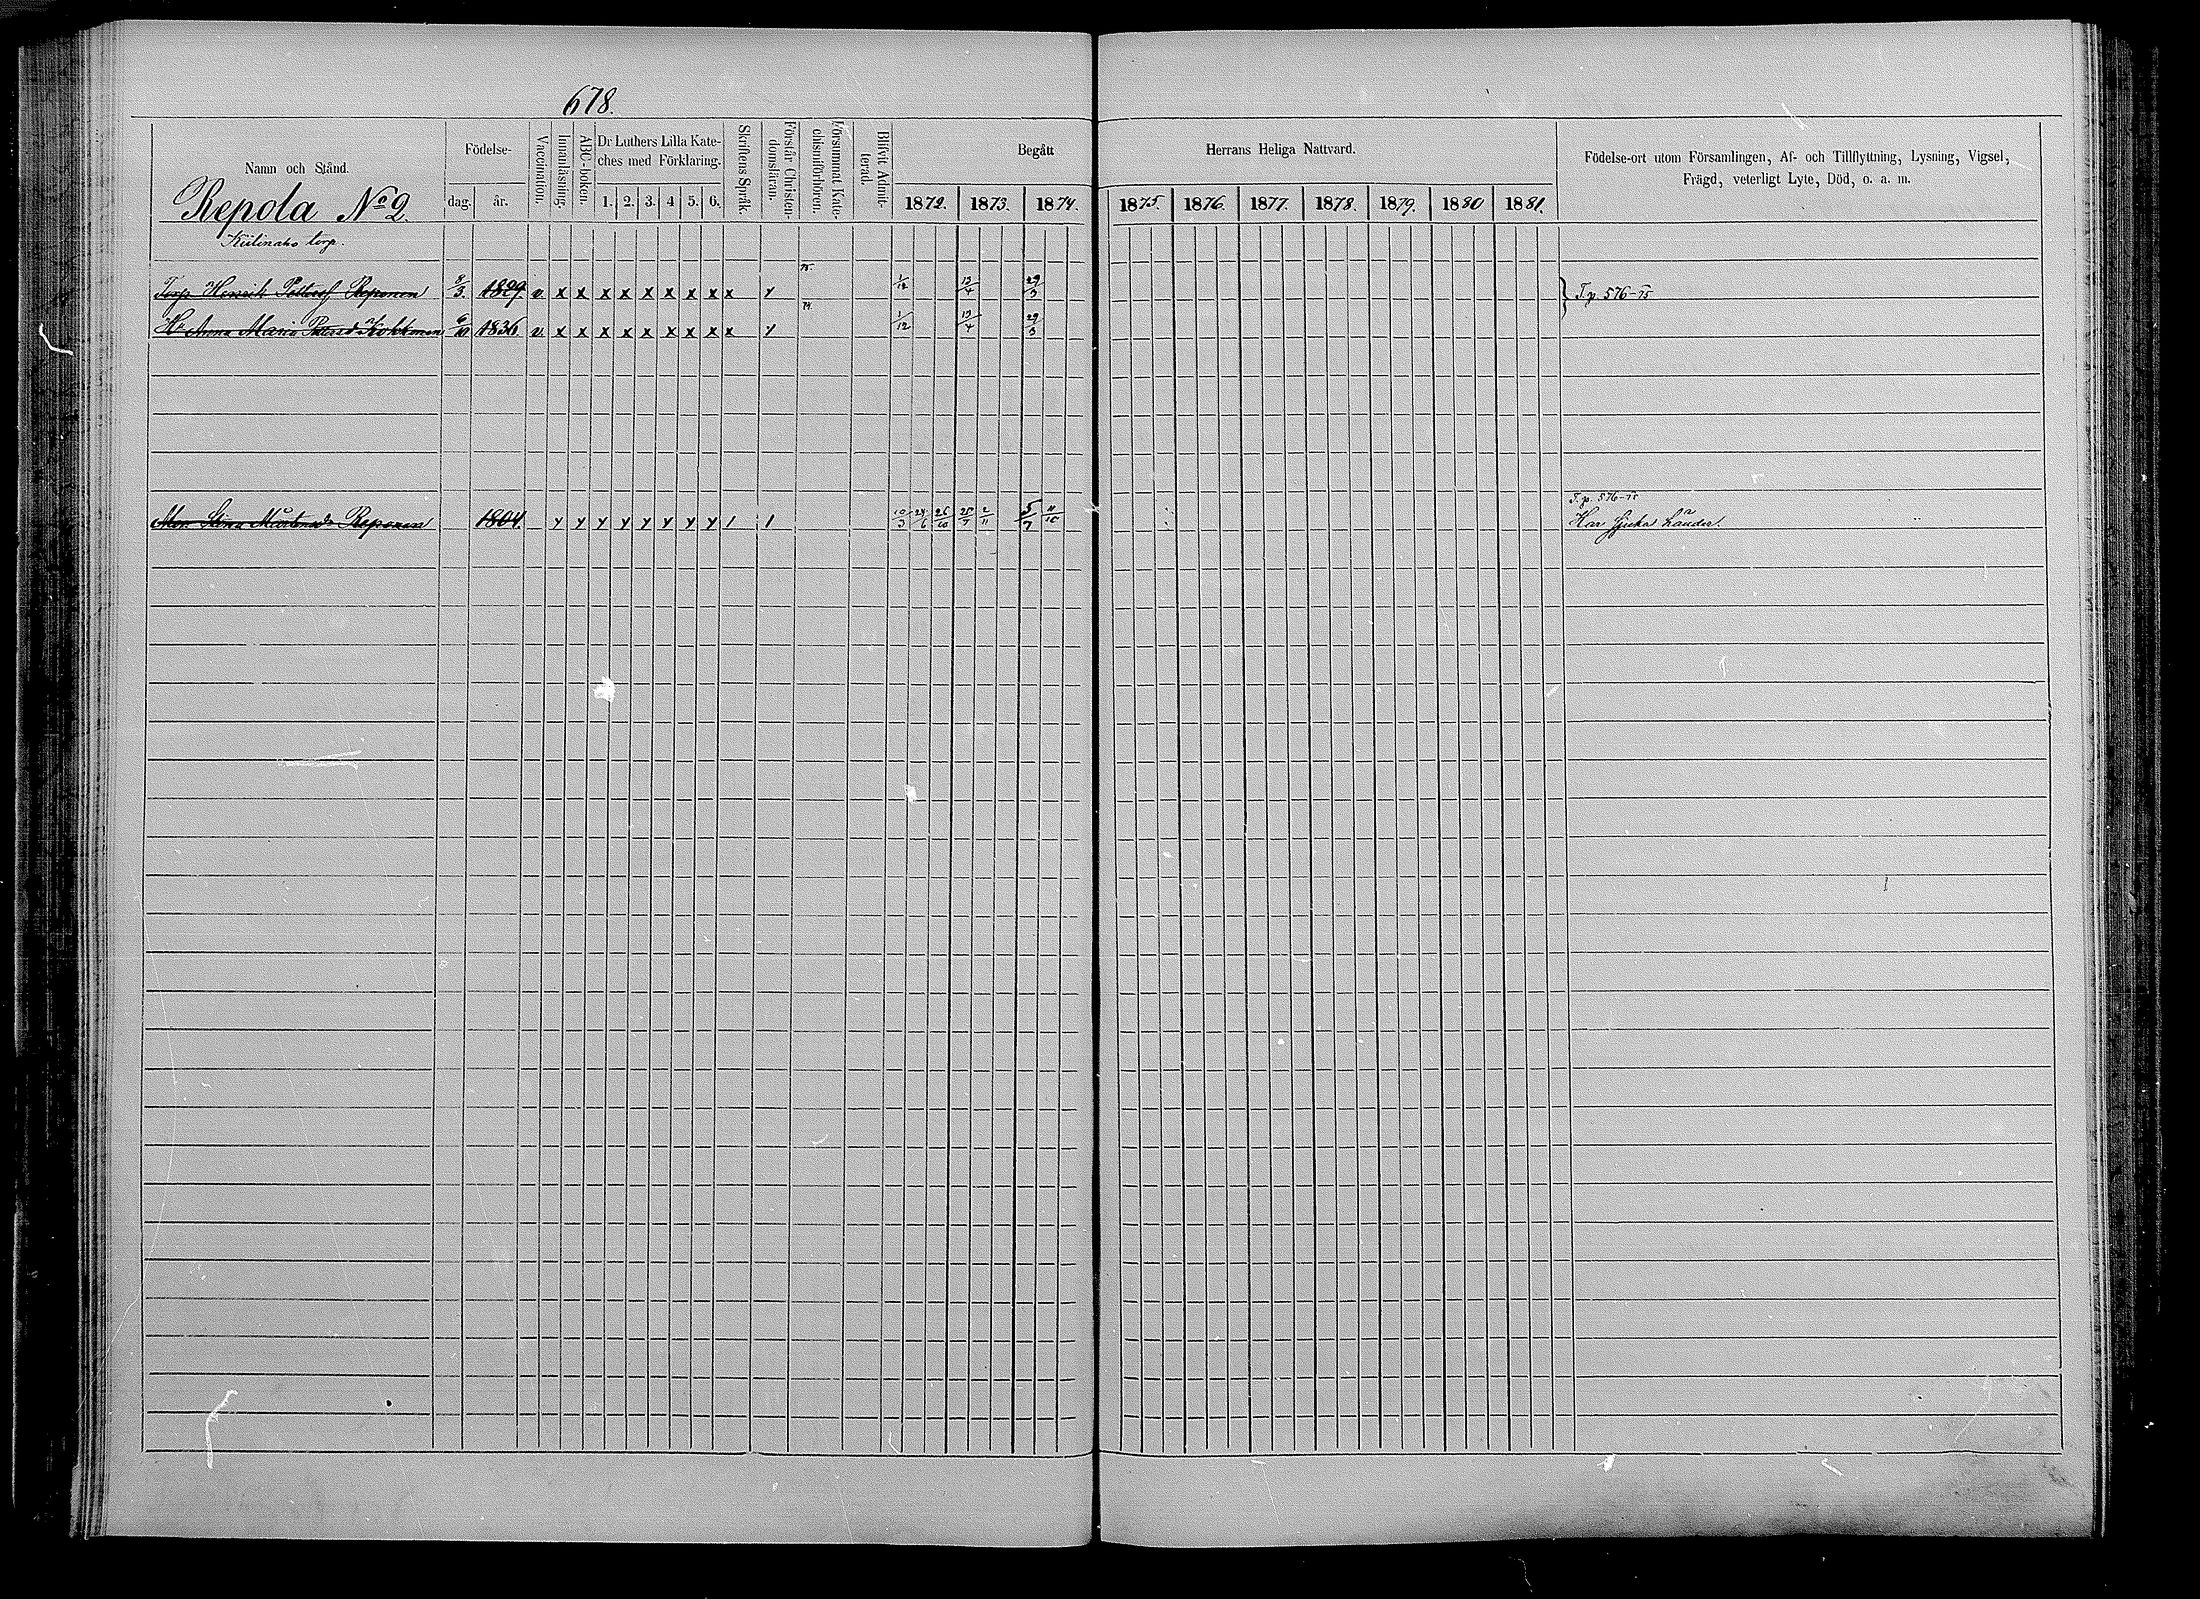 678.
Namn och Stånd.
Födelse-
dag. år.
Vaccination.
Innanläsning.
ABC-boken.
Dr Luthers Lilla Kate-
ches med Förklaring.
1. 2. 3. 4 5. 6.
Skriftens Språk.
Förstår Christen-
domsläran.
Försummat Kate-
chismiförhören.
Blifvit Admit-
terad.
Begått Herrans Heliga Nattvard.
1872. 1873. 1874. 1875. 1876. 1877. 1878. 1879. 1880 1881.
Födelse-ort utom Församlingen, Af- och Tillflyttning, Lysning, Vigsel,
Frägd, veterligt Lyte, Död, o. a. m.
Repola No 2.
torp.
75.
Torp. Henrik Reponen 8/3. 1829. v. x x x x x x x x x y 1/12 13/4 29/3 T.p. 576-75
74.
H. Anna Maria Kokkonen 1836 v. x x x x x x x x x y 1/12 13/4 29/3
T.p. 576-75
Mor Stina Mårtensd. Reponen 1804. y y y y y y y y / / 10/3 26/10 2/11 5/7 11/10 Har sjuka händer.